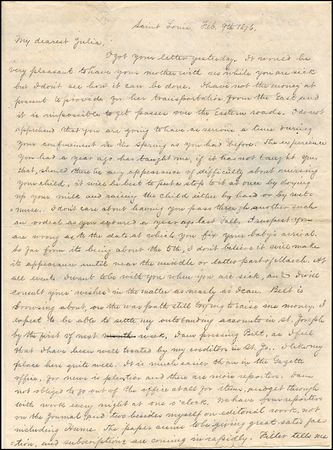 Saint Louis, Feb. 9th 1876.
My dearest Julia:
I got your letter yesterday. It would be
very pleasant to have your mother with us while you are sick
but I don't see how it can be done. I have not the money at
present to provide for her transportation from the East and
it is impossible to get passes over the Eastern roads. I do not
apprehend that you are going to have as serious a time during
your confinement in the Spring as you had before. The experience
you had a year ago has taught me, if it has not taught you
that, should there be any appearance of difficulty about nursing
your child, it will be best to put a stop to it at once by drying
up your milk and rearing the child either by hand or by wet
nurse. I don't care about having you pass through another such
an ordeal as you endured a year ago last Fall. I suspect you
are wrong as to the date at which you fix your baby's arrival.
So far from its being about the 5th, I don't believe it will make
its appearance until near the middle or latter part of March. At
all events I want to be with you when you are sick, and I will
consult your wishes in the matter as nearly as I can. Belt is
around about, on the war path still trying to raise some money. I
expect to be able to settle my outstanding accounts in St. Joseph
by the first of next week. I am pressing Belt, as I feel
that I have been well treated by my creditors in St. Jo. I like my
place here quite well. It is much easier than in the Gazette
office, for news is plentier and there are more reporters. I am
not obliged to go out of the office at all for items, and get through
with work every night at one o'clock. We have four reporters
on the Journal and two besides myself on editorial work, not
including Hume. The paper seems to be giving great satisfac-
tion, and subscriptions are coming in rapidly. Peltier tells me